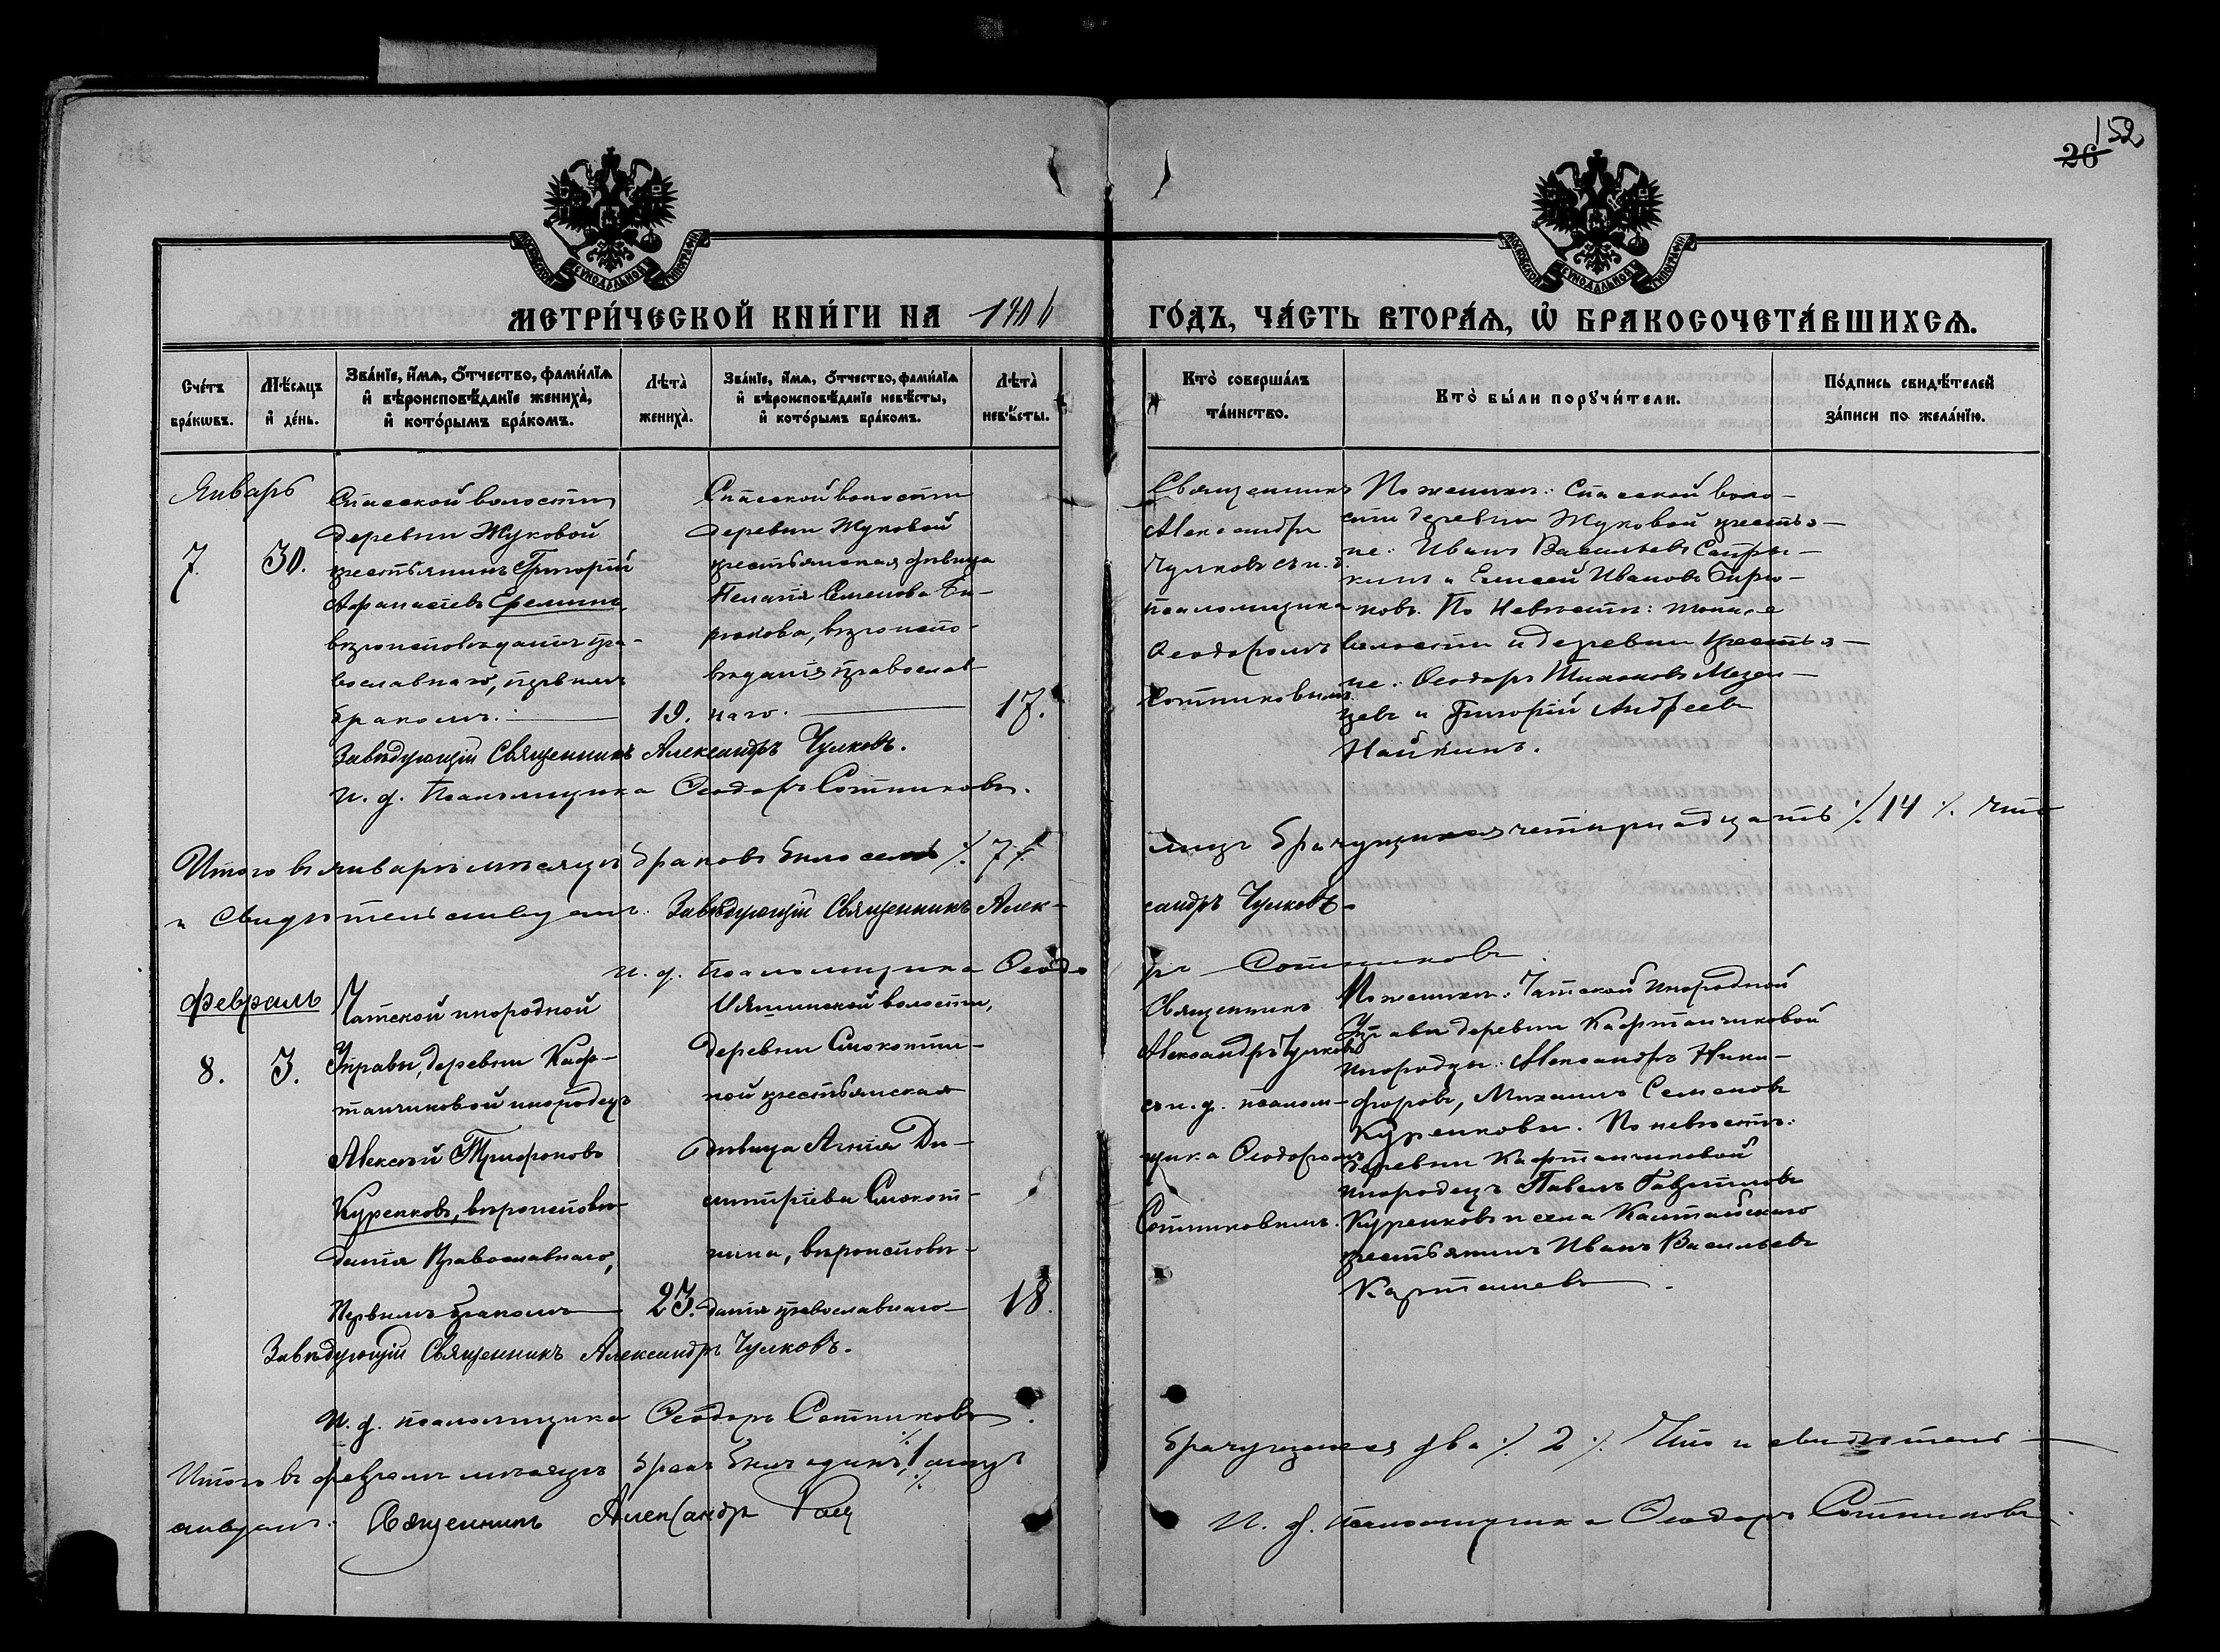 152
26
МОСКОВСКОЙ СѴНОДАЛЬНОЙ ТИПОГРАФІИ
МОСКОВСКОЙ СѴНОДАЛЬНОЙ ТИПОГРАФІИ
МЕТРИ́ЧЕСКОЙ КНИ́ГИ НА 1906
ГО́ДЪ, ЧА́СТЬ ВТОРА́Я, Ѡ БРАКОСОЧЕТА́ВШИХСЯ.
Сче́тъ
бра́кѡвъ.
Мѣ́сяцъ
и҆ де́нь.
Зва́нїе, и҆́мя, ѻ҆́тчество, фами́лїя
и҆ вѣроисповѣ́данїе жениха̀,
и҆ кото́рымъ бра́комъ.
Лѣта̀
жениха̀.
Зва́нїе, и҆́мя, ѻ҆́тчество, фами́лїя
и҆ вѣроисповѣ́данїе невѣ́сты,
и҆ кото́рымъ бра́комъ.
Лѣта̀
невѣ́сты.
Кто̀ соверша́лъ
та́инство.
Кто̀ бы́ли порꙋчи́тели.
По́дпись свидѣ́телей
за́писи по жела́нїю.
Январь
7.
30.
Спасской волости
деревни Жуковой
крестьянинъ Григорій
Афанасіевъ Еремин
вѣроисповѣданія пра-
вославнаго, первымъ
бракомъ.
19.
Спасской волости
деревни Жуковой
крестьянская дѣвица
Пелагія Семенова Би-
рюкова, вѣроиспо-
вѣданія православ-
наго.
17.
Священникъ
Александръ
Чулковъ съ и. д.
псаломщика
Ѳеодоромъ
Сотниковымъ.
По женихѣ: Спасской воло-
сти деревни Жуковой крестья-
не: Иванъ Васильевъ
и Елисей Ивановъ Бирю-
ковъ. По невѣстѣ: той же
волости и деревни крестья-
не: Ѳеодоръ Тихоновъ Мезен-
цевъ и Григорій Андреевъ
Найкинъ.
Завѣдующій Священникъ Александръ Чулковъ.
И. д. Псаломщика Ѳеодоръ Сотниковъ.
Итого въ январѣ мѣсяцѣ браковъ было семь ٪ 7 ٪
лицъ брачущихся четырнадцать ٪ 14 ٪ что
и свидѣтельствуемъ: Завѣдующій Священникъ Алек-
сандръ Чулковъ.
И. д. псаломщика Ѳеодо
ръ Сотниковъ.
Февраль
8.
3.
Чатской инородной
Управы, деревни Каф-
танчиковой инородецъ
Алексѣй Трифоновъ
Куренковъ, вѣроисповѣ-
данія Православнаго,
Первымъ бракомъ
23.
Ишимской волости,
деревни Смокоти-
ной крестьянская
дѣвица Агнія Ди-
митріева Смокот-
нина, вѣроисповѣ-
данія православнаго
18.
Священникъ
Александръ Чулковъ
съ и. д. псалом-
щика Ѳеодоромъ
Сотниковымъ.
По женихѣ: Чатской инородной
Управы деревни Кафтанчиковой
инородцы: Александръ Ники-
форовъ, Михаилъ Семеновъ
Куренковы. По невѣстѣ:
деревни Кафтанчиковой
инородецъ Павелъ Гавриловъ
Куренковъ и села Калтайскаго
крестьянинъ Иванъ Васильевъ
Карташевъ.
Завѣдующій Священникъ Александръ Чулковъ.
И. д. псаломщика Ѳеодоръ Сотниковъ.
Итого въ февралѣ мѣсяцѣ бракъ былъ одинъ ٪ 1 ٪ лицъ
брачущихся два ٪ 2 ٪ Что и свидѣтель-
ствуемъ: Священникъ Александръ
И. д. псаломщика Ѳеодоръ Сотниковъ.